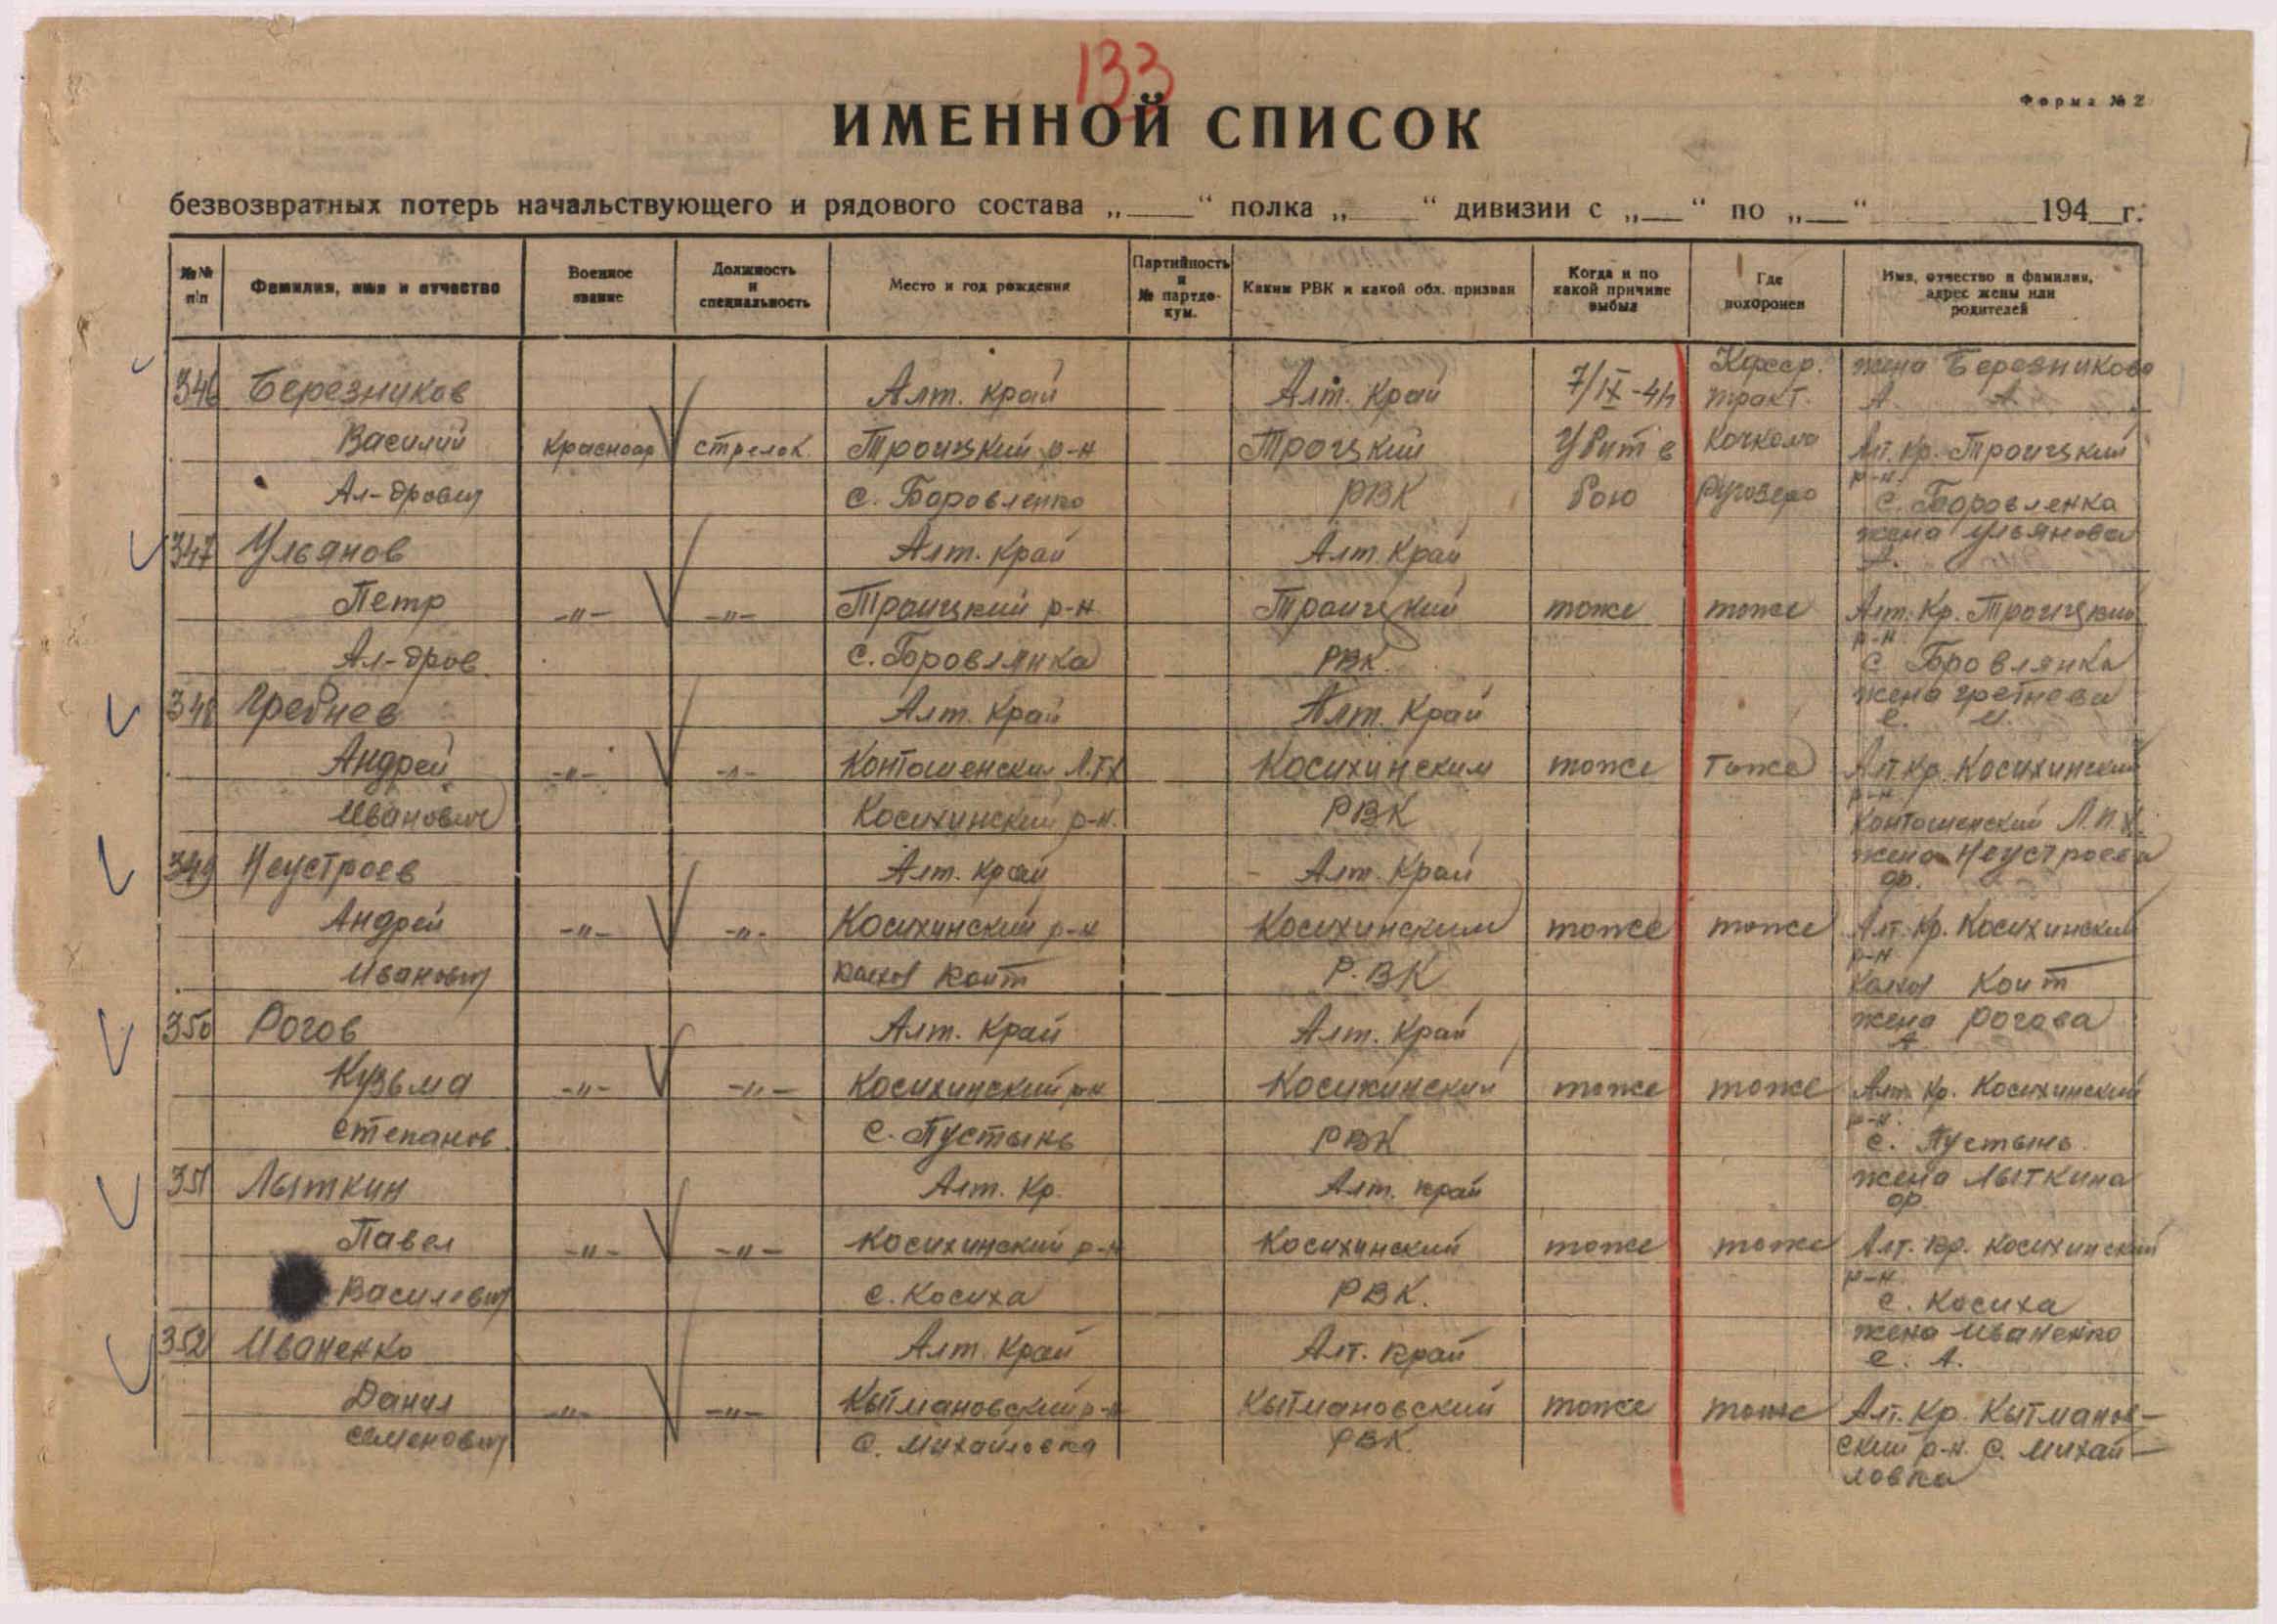 133
Форма № 2
ИМЕННОЙ СПИСОК
безвозвратных потерь начальствующего и рядового состава „____“ полка „____“ дивизии с „__“ по „__“ ________ 194__г.
№№ п/п | Фамилия, имя и отчество | Военное звание | Должность и специальность | Место и год рождения | Партийность и № партдокум. | Каким РВК и какой обл. призван | Когда и по какой причине выбыл | Где похоронен | Имя, отчество и фамилия, адрес жены или родителей
346 Березников | Алт. край | Алт. край | 7/IX-41 | Кфсср. тракт. | жена Березникова А. А.
Василий | красноар | стрелок. | Троицкий р-н | Троцкий | Убит в | Кочкома | Алт. кр. Троицкий р-н.
Ал-дрович | с. Боровленко | РВК | бою | Ругозеро | с. Боровленка
347 Ульянов | Алт. Край | Алт. Край | жена Ульянова
Петр | -"- | -"- | Троицкий р-н | Троицкий | тоже | тоже | Алт. Кр. Троицкий р-н
Ал-дров. | с. Боровлянка | РВК. | с Бровлянка
348 Гребнев | Алт. Край | Алт. Край | жена Гребнева
Андрей | -"- | -"- | Контошенский Л.П.Х | Косихинским | тоже | тоже | Алт. Кр. Косихинский р-н
Иванович | Косихинский р-н. | РВК | Контошенский Л.П.Х.
349 Неустроев | Алт. край | Алт. Край | жена Неустроева
Андрей | -"- | -"- | Косихинский р-н | Косихинским | тоже | тоже | Алт. Кр. Косихинский р-н.
Иванович | колхоз Коит | Р.ВК | колхоз Коит
350 Рогов | Алт. Край | Алт. Край | жена Рогова
Кузьма | -"- | -"- | Косихинский р-н | Косихинский | тоже | тоже | Алт. Кр. Косихинский р-н.
Степанов. | с. Пустынь | РВК | с. Пустынь.
351 Лыткин | Алт. Кр. | Алт. край | жена Лыткина
Павел | -"- | -"- | Косихинский р-н | Косихинский | тоже | тоже | Алт. кр. Косихинский р-н.
Василевич | с. Косиха | РВК. | с. Косиха
352 Иваненко | Алт. Край | Алт. край | жена Иваненко Е. А.
Данил | -"- | -"- | Кытмановский р-н | Кытмановский | тоже | тоже | Алт. Кр. Кытманов-
Семенович | с. Михайловка | РВК. | ский р-н. с. Михай-
ловка